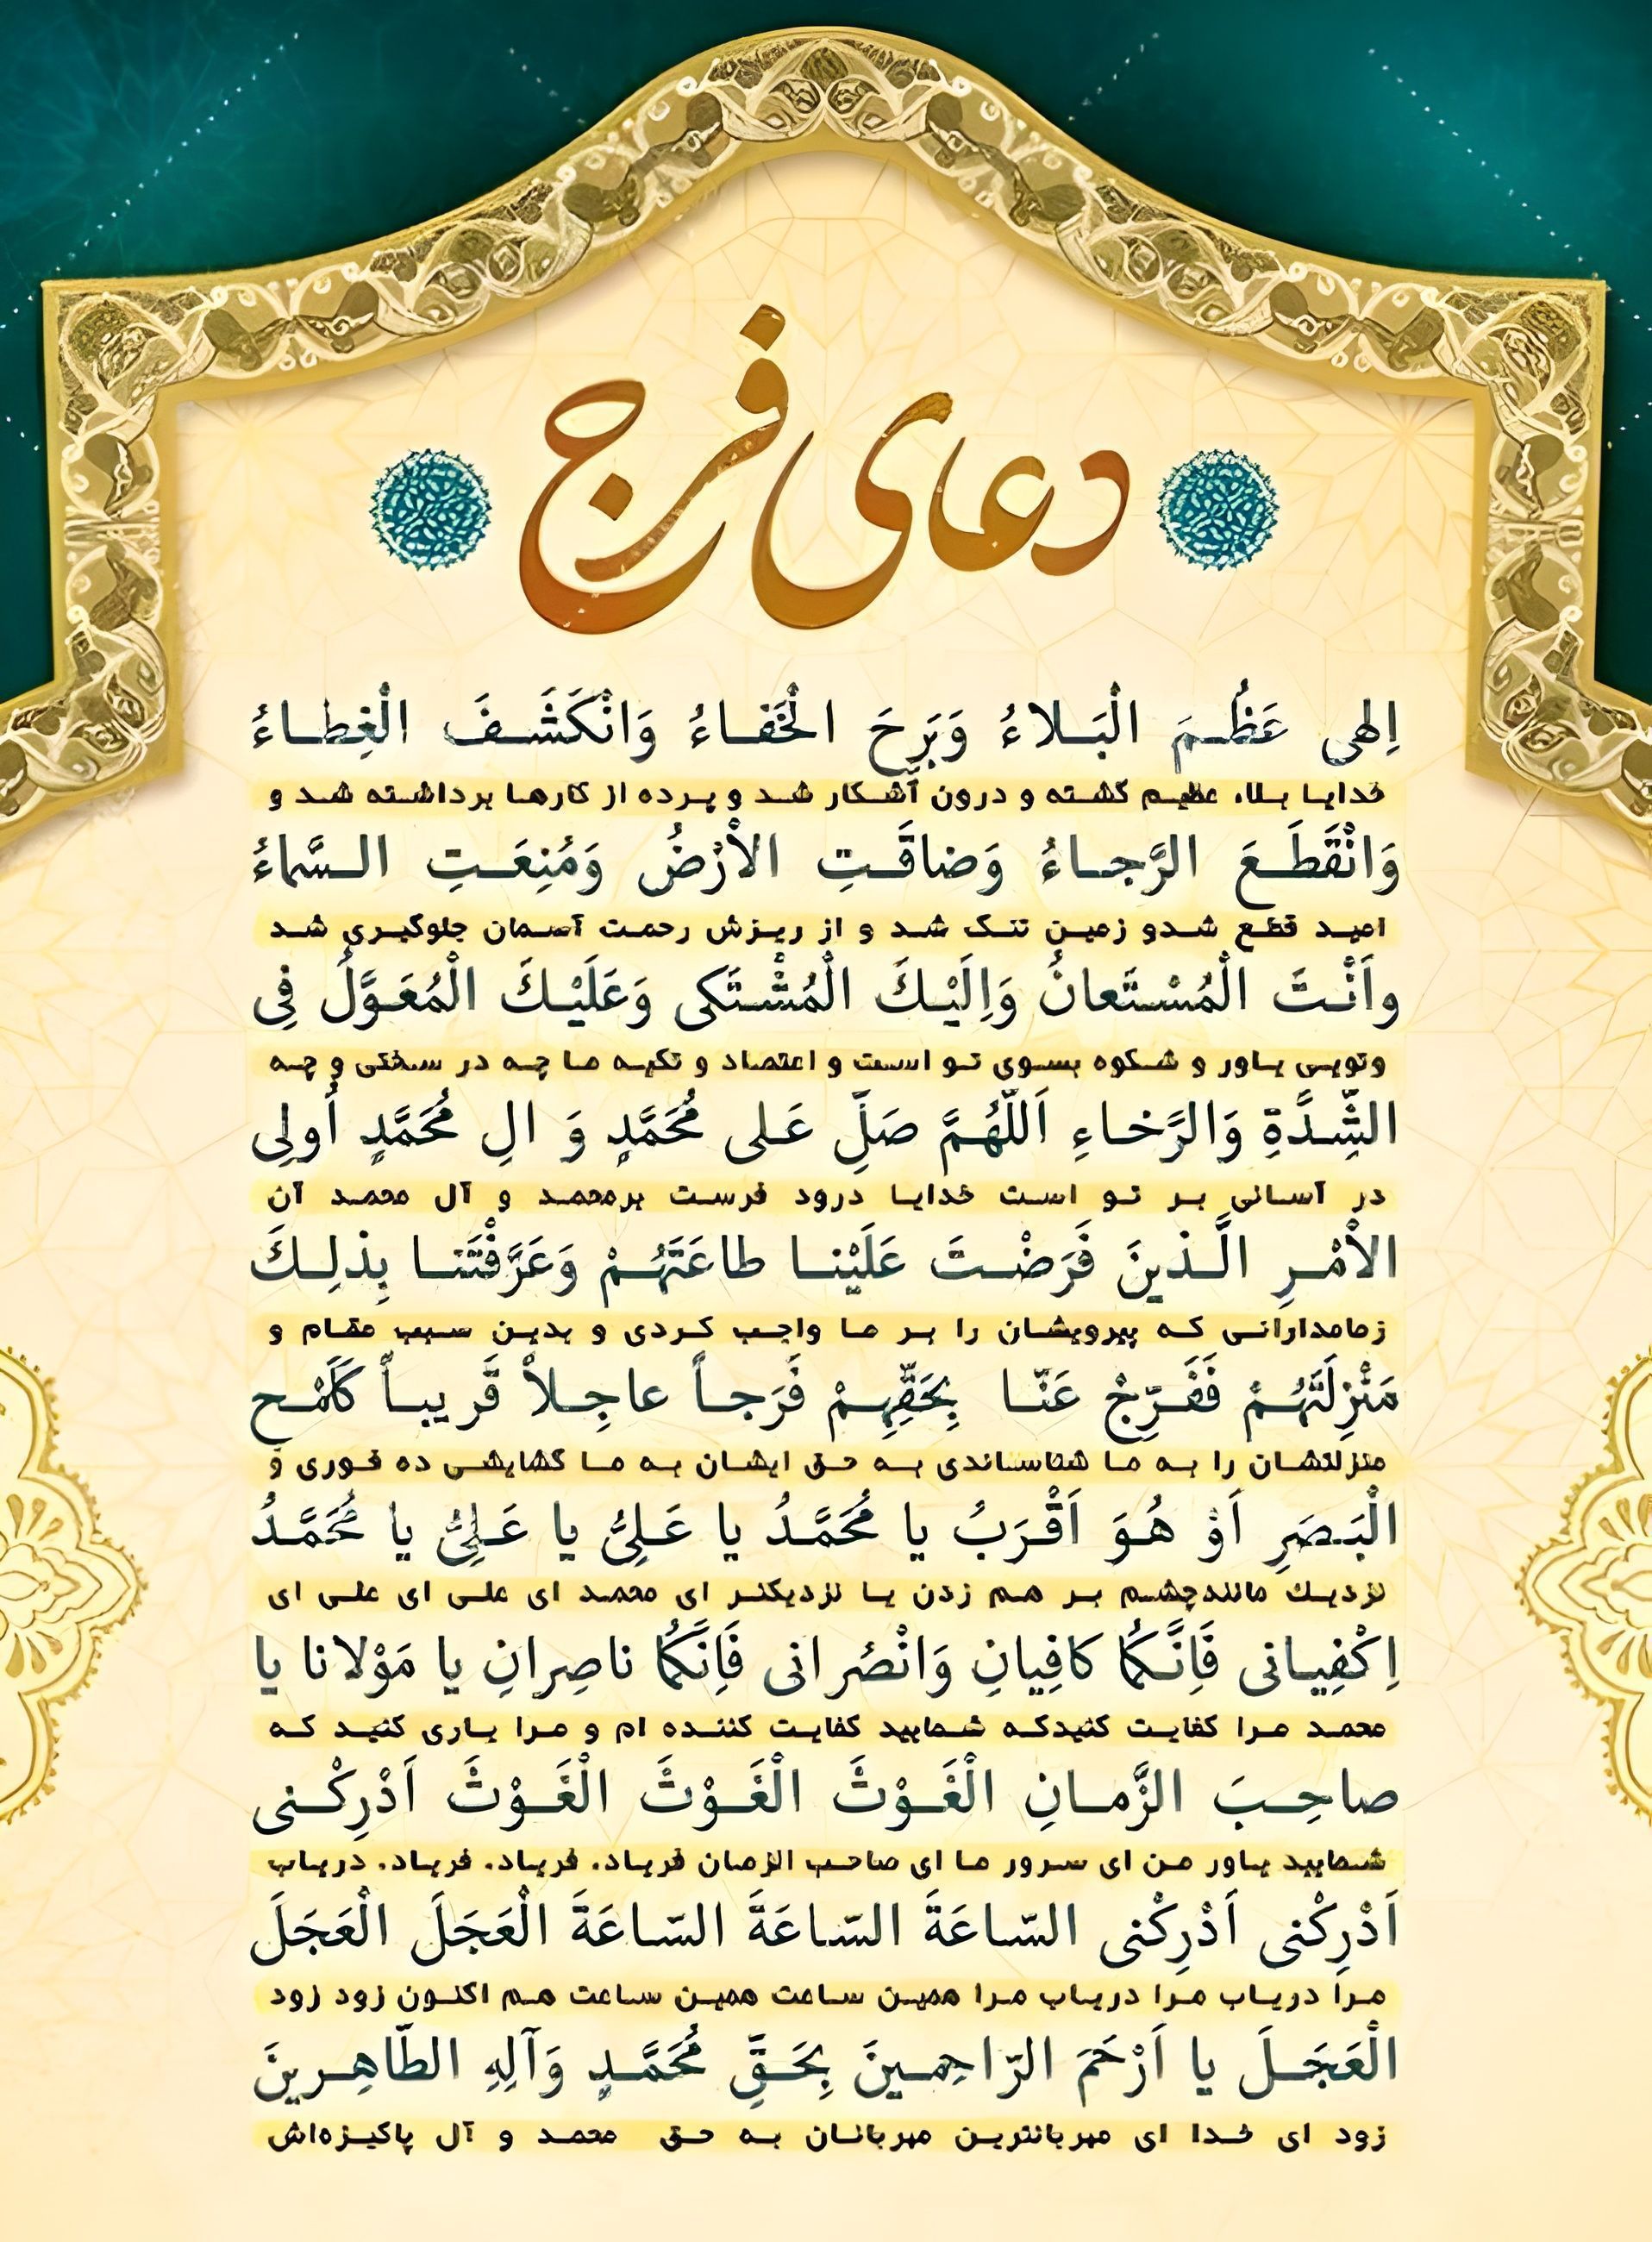 دعای فرج
اِلهی عَظُمَ الْبَلاءُ وَبَرِحَ الْخَفاءُ وَانْکَشَفَ الْغِطاءُ
خدایا بلاء عظیم گشته و درون آشکار شد و پرده از کارها برداشته شد و
وَانْقَطَعَ الرَّجاءُ وَضاقَتِ الاَْرْضُ وَمُنِعَتِ السَّماءُ
امید قطع شدو زمین تنگ شد و از ریزش رحمت آسمان جلوگیری شد
واَنْتَ الْمُسْتَعانُ وَاِلَیْكَ الْمُشْتَکی وَعَلَیْكَ الْمُعَوَّلُ فِی
وتویی یاور و شکوه بسوی تو است و اعتصاد و تکیه ما چه در سختی و چه
الشِّدَّةِ وَالرَّخاءِ اَللّهُمَّ صَلِّ عَلی مُحَمَّدٍ وَ الِ مُحَمَّدٍ اُولِی
در آسانی بر تو است خدایا درود فرست برمحمد و آل محمد آن
الاَْمْرِ الَّذینَ فَرَضْتَ عَلَیْنا طاعَتَهُمْ وَعَرَّفْتَنا بِذلِكَ
زمامدارانی که پیرویشان را بر ما واجب کردی و بدین سبب مقام و
مَنْزِلَتَهُمْ فَفَرِّجْ عَنّا بِحَقِّهِمْ فَرَجاً عاجِلاً قَریباً کَلَمْحِ
منزلتشان را به ما شناساندی به حق ایشان به ما گشایشی ده فوری و
الْبَصَرِ اَوْ هُوَ اَقْرَبُ یا مُحَمَّدُ یا عَلِیُّ یا عَلِیُّ یا مُحَمَّدُ
نزدیك مانندچشم بر هم زدن یا نزدیکتر ای محمد ای علی ای علی ای
اِکْفِیانی فَاِنَّکُما کافِیانِ وَانْصُرانی فَاِنَّکُما ناصِرانِ یا مَوْلانا یا
محمد مرا کفایت کنیدکه شمایید کفایت کننده ام و مرا یاری کنید که
صاحِبَ الزَّمانِ الْغَوْثَ الْغَوْثَ الْغَوْثَ اَدْرِکْنی
شمایید یاور من ای سرور ما ای صاحب الزمان فریاد، فریاد، فریاد، دریاب
اَدْرِکْنی اَدْرِکْنی السّاعَةَ السّاعَةَ السّاعَةَ الْعَجَلَ الْعَجَلَ
مرا دریاب مرا دریاب مرا همین ساعت همین ساعت هم اکنون زود زود
الْعَجَلَ یا اَرْحَمَ الرّاحِمینَ بِحَقِّ مُحَمَّدٍ وَآلِهِ الطّاهِرینَ
زود ای خدا ای مهربانترین مهربانان به حق محمد و آل پاکیزه‌اش